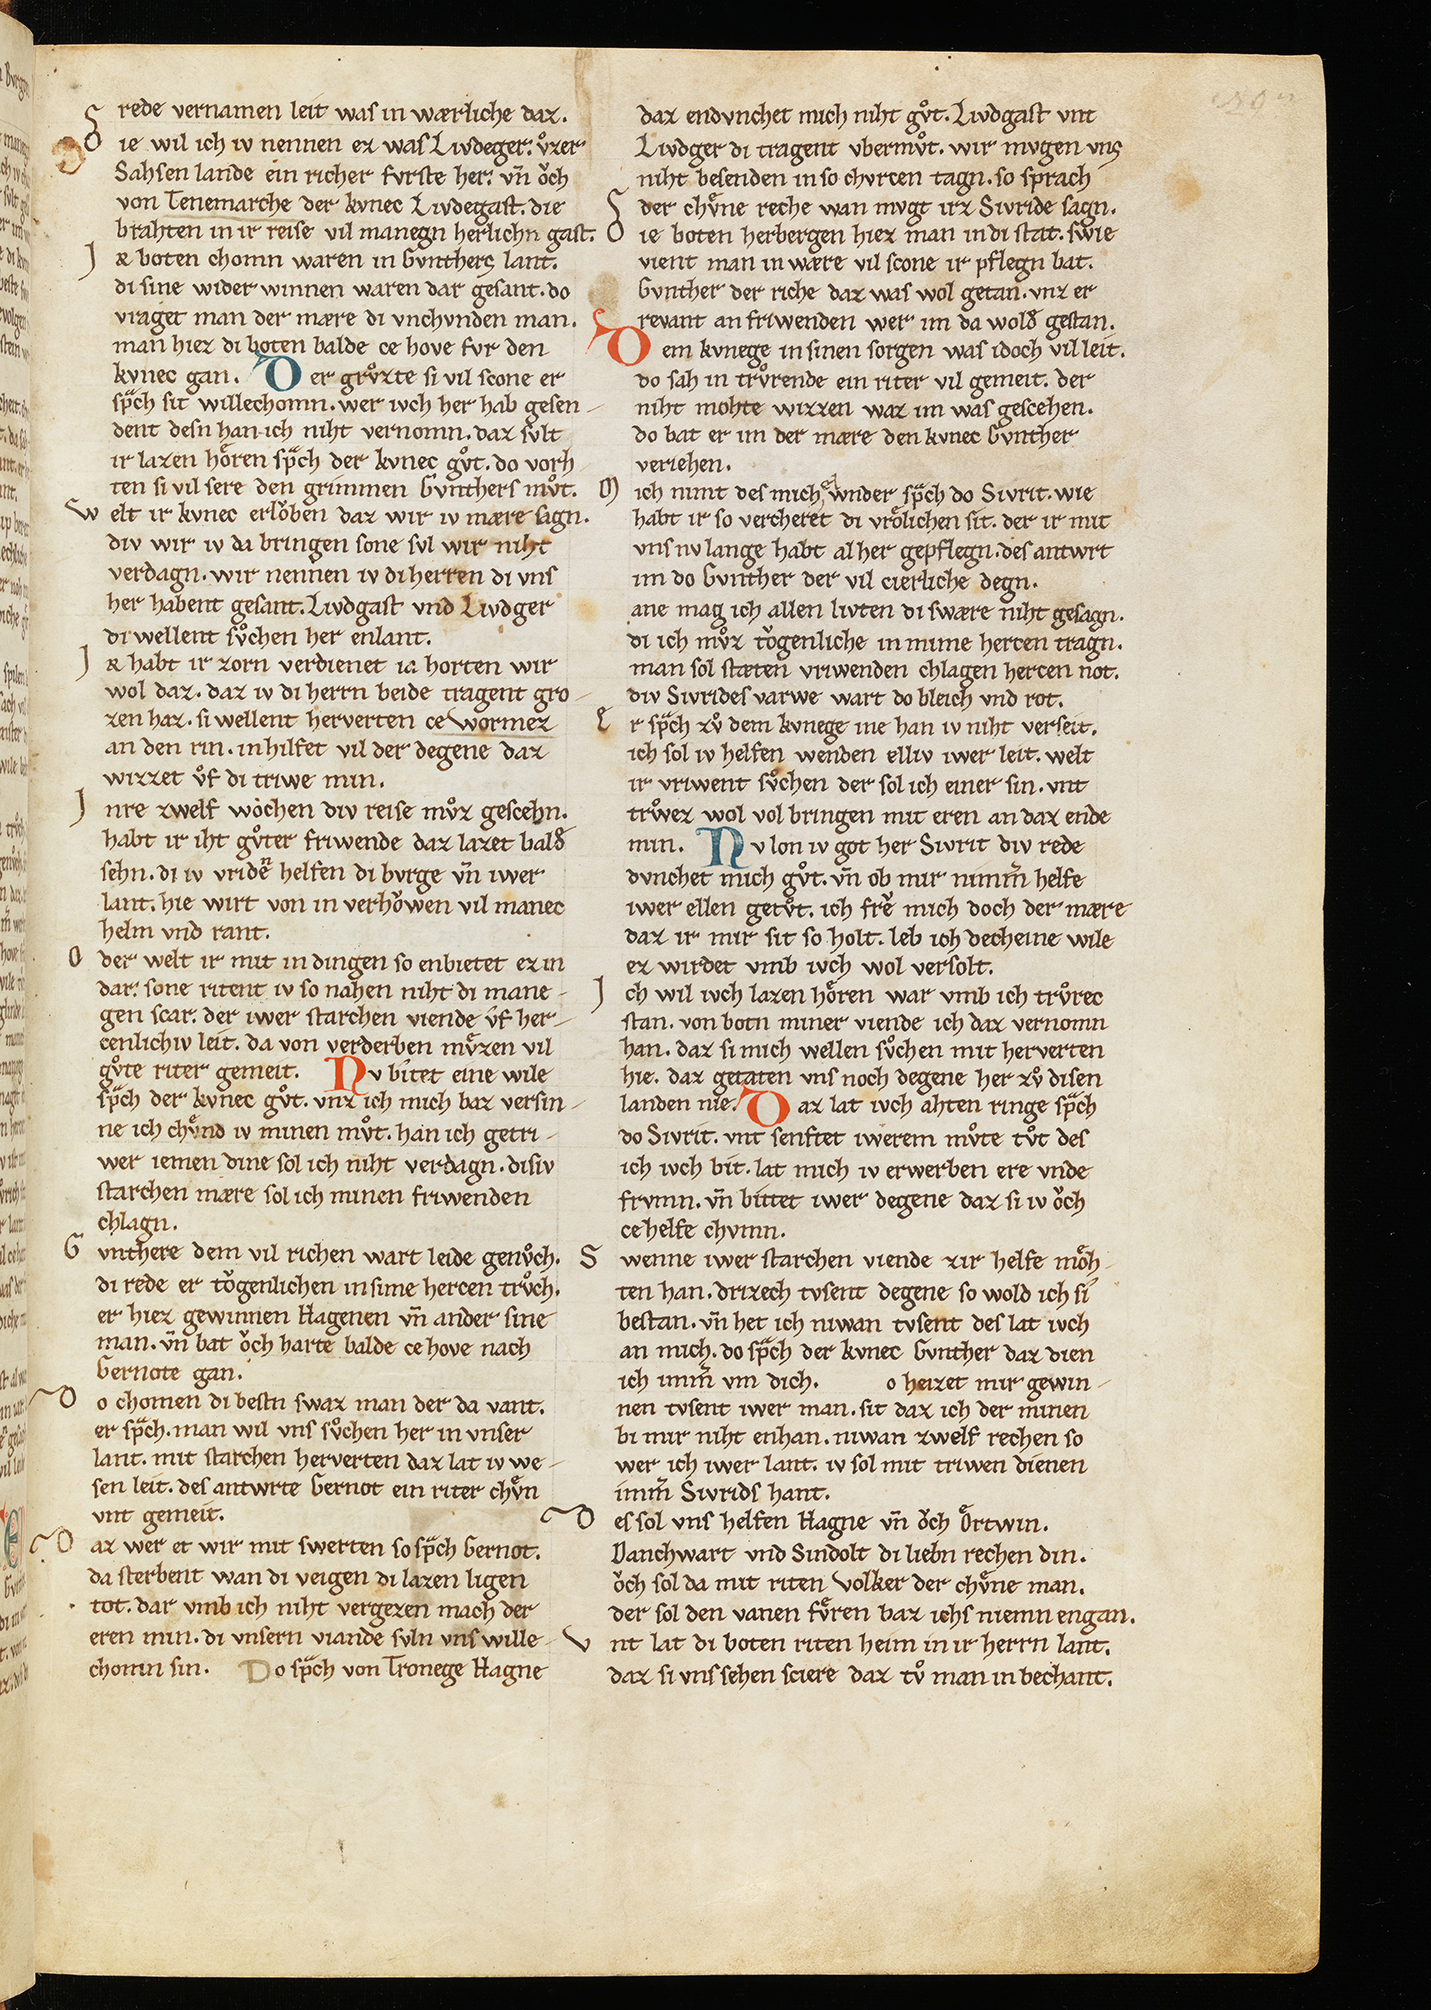 rede vernamen leit was in wærliche daz.
Die wil ich iv nennen ez was Livdeger. vͦzer
Sahsen lande ein richer fvrste her. vn̄ oͮch
von Tenemarche der kvnec Livdegast. die
brahten in ir reise vil manegn herlichn gast.
Ir boten chomn waren in Gvnthers lant.
di sine wider winnen waren dar gesant. do
vraget man der mære di vnchvnden man.
man hiez di boten balde ce hove fvr den
kvnec gan. Der grvͦzte si vil scone er
sp̄ch sit willechomn. wer ivch her hab gesen
dent desn han ich niht vernomn. daz svlt
ir lazen hoͤren sp̄ch der kvnec gvͦt. do vorh
ten si vil sere den grimmen Gvnthers mvͦt.
Welt ir kvnec erloͮben daz wir iv mære sagn.
div wir iv da bringen sone svl wir niht
verdagn. wir nennen iv di herren di vns
her habent gesant. Livdgast vnd Livdger
di wellent svͦchen her enlant.
Ir habt ir zorn verdienet ia horten wir
wol daz. daz iv di herrn beide tragent gro
zen haz. si wellent herverten ce Wormez
an den rin. in hilfet vil der degene daz
wizzet vͦf di triwe min.
Inre zwelf wochen div reise mvͦz gescehn.
habt ir iht gvͦter friwende daz lazet bald
sehn. di iv vriden helfen di bvrge vn̄ iwer
lant. hie wirt von in verhoͮwen vil manec
helm vnd rant.
Oder welt ir mit in dingen so enbietet ez in
dar. sone ritent iv so nahen niht di mane
gen scar. der iwer starchen viende vͦf her
cenlichiv leit. da von verderben mvͤzen vil
gvͦte riter gemeit. Nv bitet eine wile
sp̄ch der kvnec gvͦt. vnz ich mich baz versin
ne ich chvͤnd iv minen mvͦt. han ich getri
wer iemen dine sol ich niht verdagn. disiv
starchen mære sol ich minen friwenden
chlagn.
Gvnthere dem vil richen wart leide genvͦch.
di rede er toͮgenlichen in sime hercen trvͦch.
er hiez gewinnen Hagenen vn̄ ander sine
man. vn̄ bat oͮch harte balde ce hove nach
Gernote gan.
Do chomen di bestn swaz man der da vant.
er sp̄ch. man wil vns svͦchen her in vnser
lant. mit starchen herverten daz lat iv we
sen leit. des antwrte Gernot ein riter chvͤn
vnt gemeit.
Daz wer et wir mit swerten so sp̄ch Gernot.
da sterbent wan di veigen di lazen ligen
tot. dar vmb ich niht vergezen mach der
eren min. di vnsern viande svln vns wille
chomn sin. Do sp̄ch von Tronege Hagne
daz endvnchet mich niht gvͦt. Livdgast vnt
Livdger di tragent vbermvͦt. wir mvgen vns
niht besenden in so chvrcen tagn. so sprach
der chvͤne reche wan mvgt irz Sivride sagn.
Die boten herbergen hiez man in di stat. swie
vient man in wære vil scone ir pflegn bat.
Gvnther der riche daz was wol getan. vnz er
revant an friwenden wer im da wold gestan.
Dem kvnege in sinen sorgen was idoch vil leit.
do sah in trvͦrende ein riter vil gemeit. der
niht mohte wizzen waz im was gescehen.
do bat er im der mære den kvnec Gvnther
veriehen.
Mich nimt des michel wnder sp̄ch do Sivrit. wie
habt ir so vercheret di vroͤlichen sit. der ir mit
vns nv lange habt al her gepflegn. des antwrt
im do Gvnther der vil cierliche degn.
ane mag ich allen livten di swære niht gesagn.
di ich mvͦz toͮgenliche in mime hercen tragn.
man sol stæten vriwenden chlagen hercen not.
div Sivrides varwe wart do bleich vnd rot.
Er sp̄ch zvͦ dem kvnege ine han iv niht verseit.
ich sol iv helfen wenden elliv iwer leit. welt
ir vriwent svͦchen der sol ich einer sin. vnt
trvͦwez wol vol bringen mit eren an daz ende
min. Nv lon iv got her Sivrit div rede
dvnchet mich gvͦt. vn̄ ob mir nimm̄ helfe
iwer ellen getvͦt. ich frē mich doch der mære
daz ir mir sit so holt. leb ich decheine wile
ez wirdet vmb ivch wol versolt.
Ich wil ivch lazen hoͤren war vmb ich trvͦrec
stan. von botn miner viende ich daz vernomn
han. daz si mich wellen svͦchen mit herverten
hie. daz getaten vns noch degene her zvͦ disen
landen nie. Daz lat ivch ahten ringe sp̄ch
do Sivrit. vnt senftet iwerem mvͦte tvͦt des
ich ivch bit. lat mich iv erwerben ere vnde
frvmn. vn̄ bittet iwer degene daz si iv oͮch
ce helfe chvmn.
Swenne iwer starchen viende zir helfe moͤh
ten han. drizech tvsent degene so wold ich si
bestan. vn̄ het ich niwan tvsent des lat ivch
an mich. do sp̄ch der kvnec Gvnther daz dien
ich imm̄ vm dich. o heizet mir gewin
nen tvsent iwer man. sit daz ich der minen
bi mir niht enhan. niwan zwelf rechen so
wer ich iwer lant. iv sol mit triwen dienen
imm̄ Sivrids hant.
Des sol vns helfen Hagne vn̄ oͮch Ortwin.
Danchwart vnd Sindolt di liebn rechen din.
oͮch sol da mit riten Volker der chvͤne man.
der sol den vanen fvͤren baz ichs niemn engan.
Vnt lat di boten riten heim in ir herrn lant.
daz si vns sehen sciere daz tvͦ man in bechant.